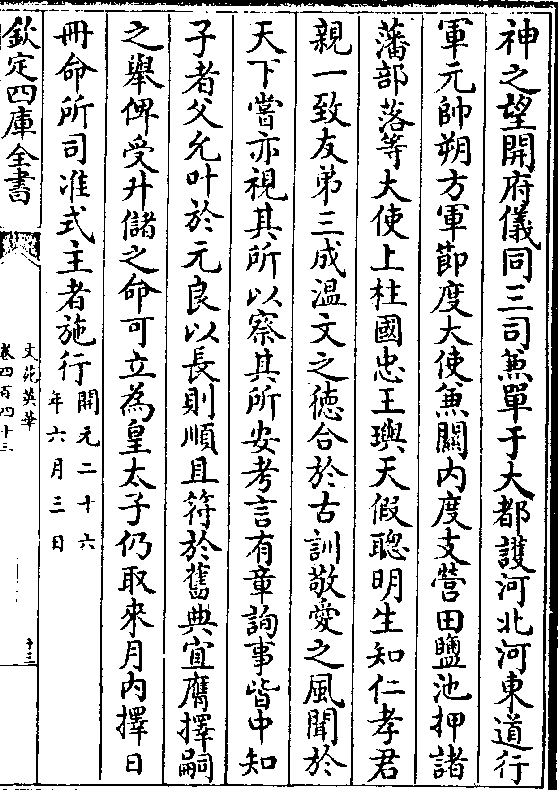 神之望開府儀同三司兼單于大都護河北河東道行
軍元帥朔方軍節度大使兼關內度支營田鹽池押諸
藩部落等大使上柱國忠王璵天假聰明生知仁孝君
親一致友弟三成温文之徳合於古訓敬愛之風聞於
天下嘗亦視其所以察其所安考言有章詢事皆中知
子者父允叶於元良以長則順且符於舊典宜膺擇嗣
之舉俾受升儲之命可立為皇太子仍取來月内擇日
冊命所司准式主者施行開元二十六
年六月三日
欽定四庫全書
文苑英華
卷四百四十三
十三